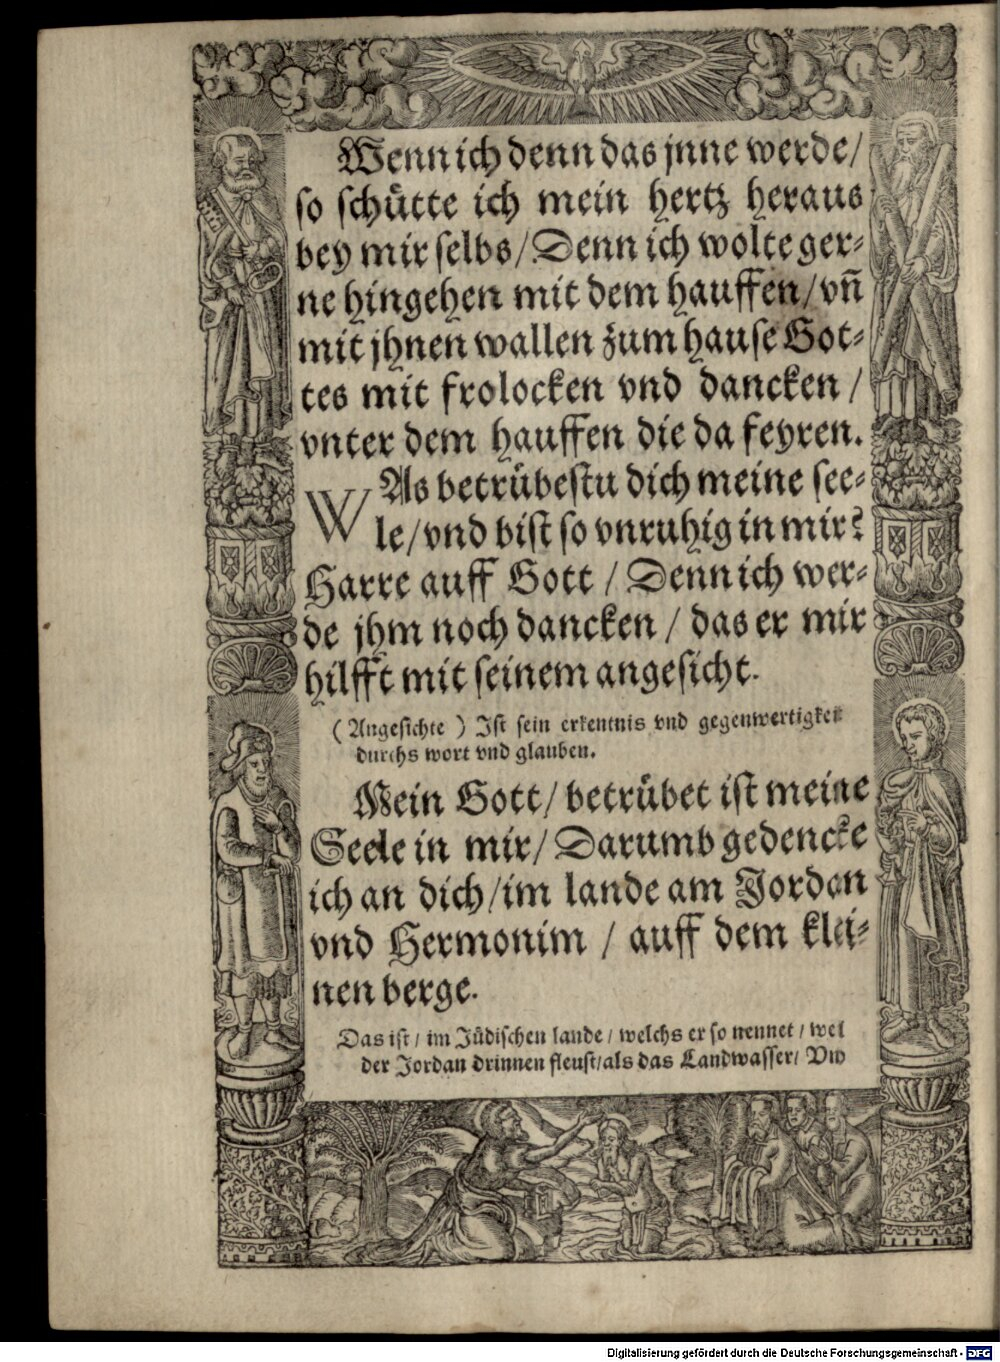 Wenn ich denn das jnne werde/
so schütte ich mein hertz heraus
bey mir selbs/ Denn ich wolte ger-
ne hingehen mit dem hauffen/ vñ
mit jhnen wallen zum hause Got-
tes mit frolocken vnd dancken /
vnter dem hauffen die da feyren.
WAs betrübestu dich meine see-
le/ vnd bist so vnruhig in mir?
Harre auff Gott / Denn ich wer-
de jhm noch dancken / das er mir
hilfft mit seinem angesicht.
( Angesichte ) Ist sein erkentnis vnd gegenwertigkeit
durchs wort vnd glauben.
Mein Gott/ betrübet ist meine
Seele in mir/ Darumb gedencke
ich an dich/ im lande am Jordan
vnd Hermonim / auff dem klei-
nen berge.
Das ist/ im Jüdischen lande/ welchs er so nennet/ weil
der Jordan drinnen fleust/ als das Landwasser/ Vnd
Digitalisierung gefördert durch die Deutsche Forschungsgemeinschaft - DFG